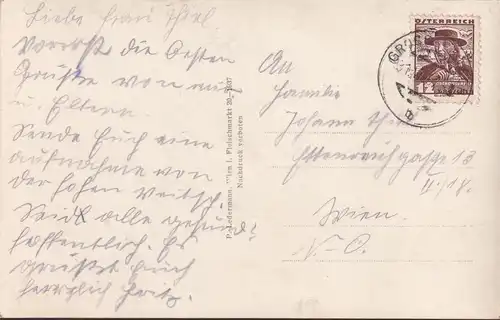 Liebe Frau Thiel
Vorerst die besten
Grüße von mir
u. Eltern.
Sende Euch eine
Aufnahme von
der hohen Veitsch.
Seid alle gesund?
hoffentlich. Es
grüßt Euch
herzlich Fritz.
P. Ledermann, Wien I. Fleischmarkt 20,
Nachdruck verboten
ÖSTERREICH
12
An
Familie
Johann Thiel
Ettenreichgasse 13
II/18.
Wien.